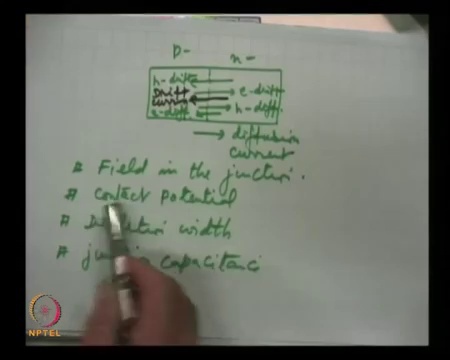 P- n-
h-drift
Drift e-drift
Current h-diff.
e-diff
diffusion
current
Field in the junction.
Contact Potential
width
capacitance
NPTEL